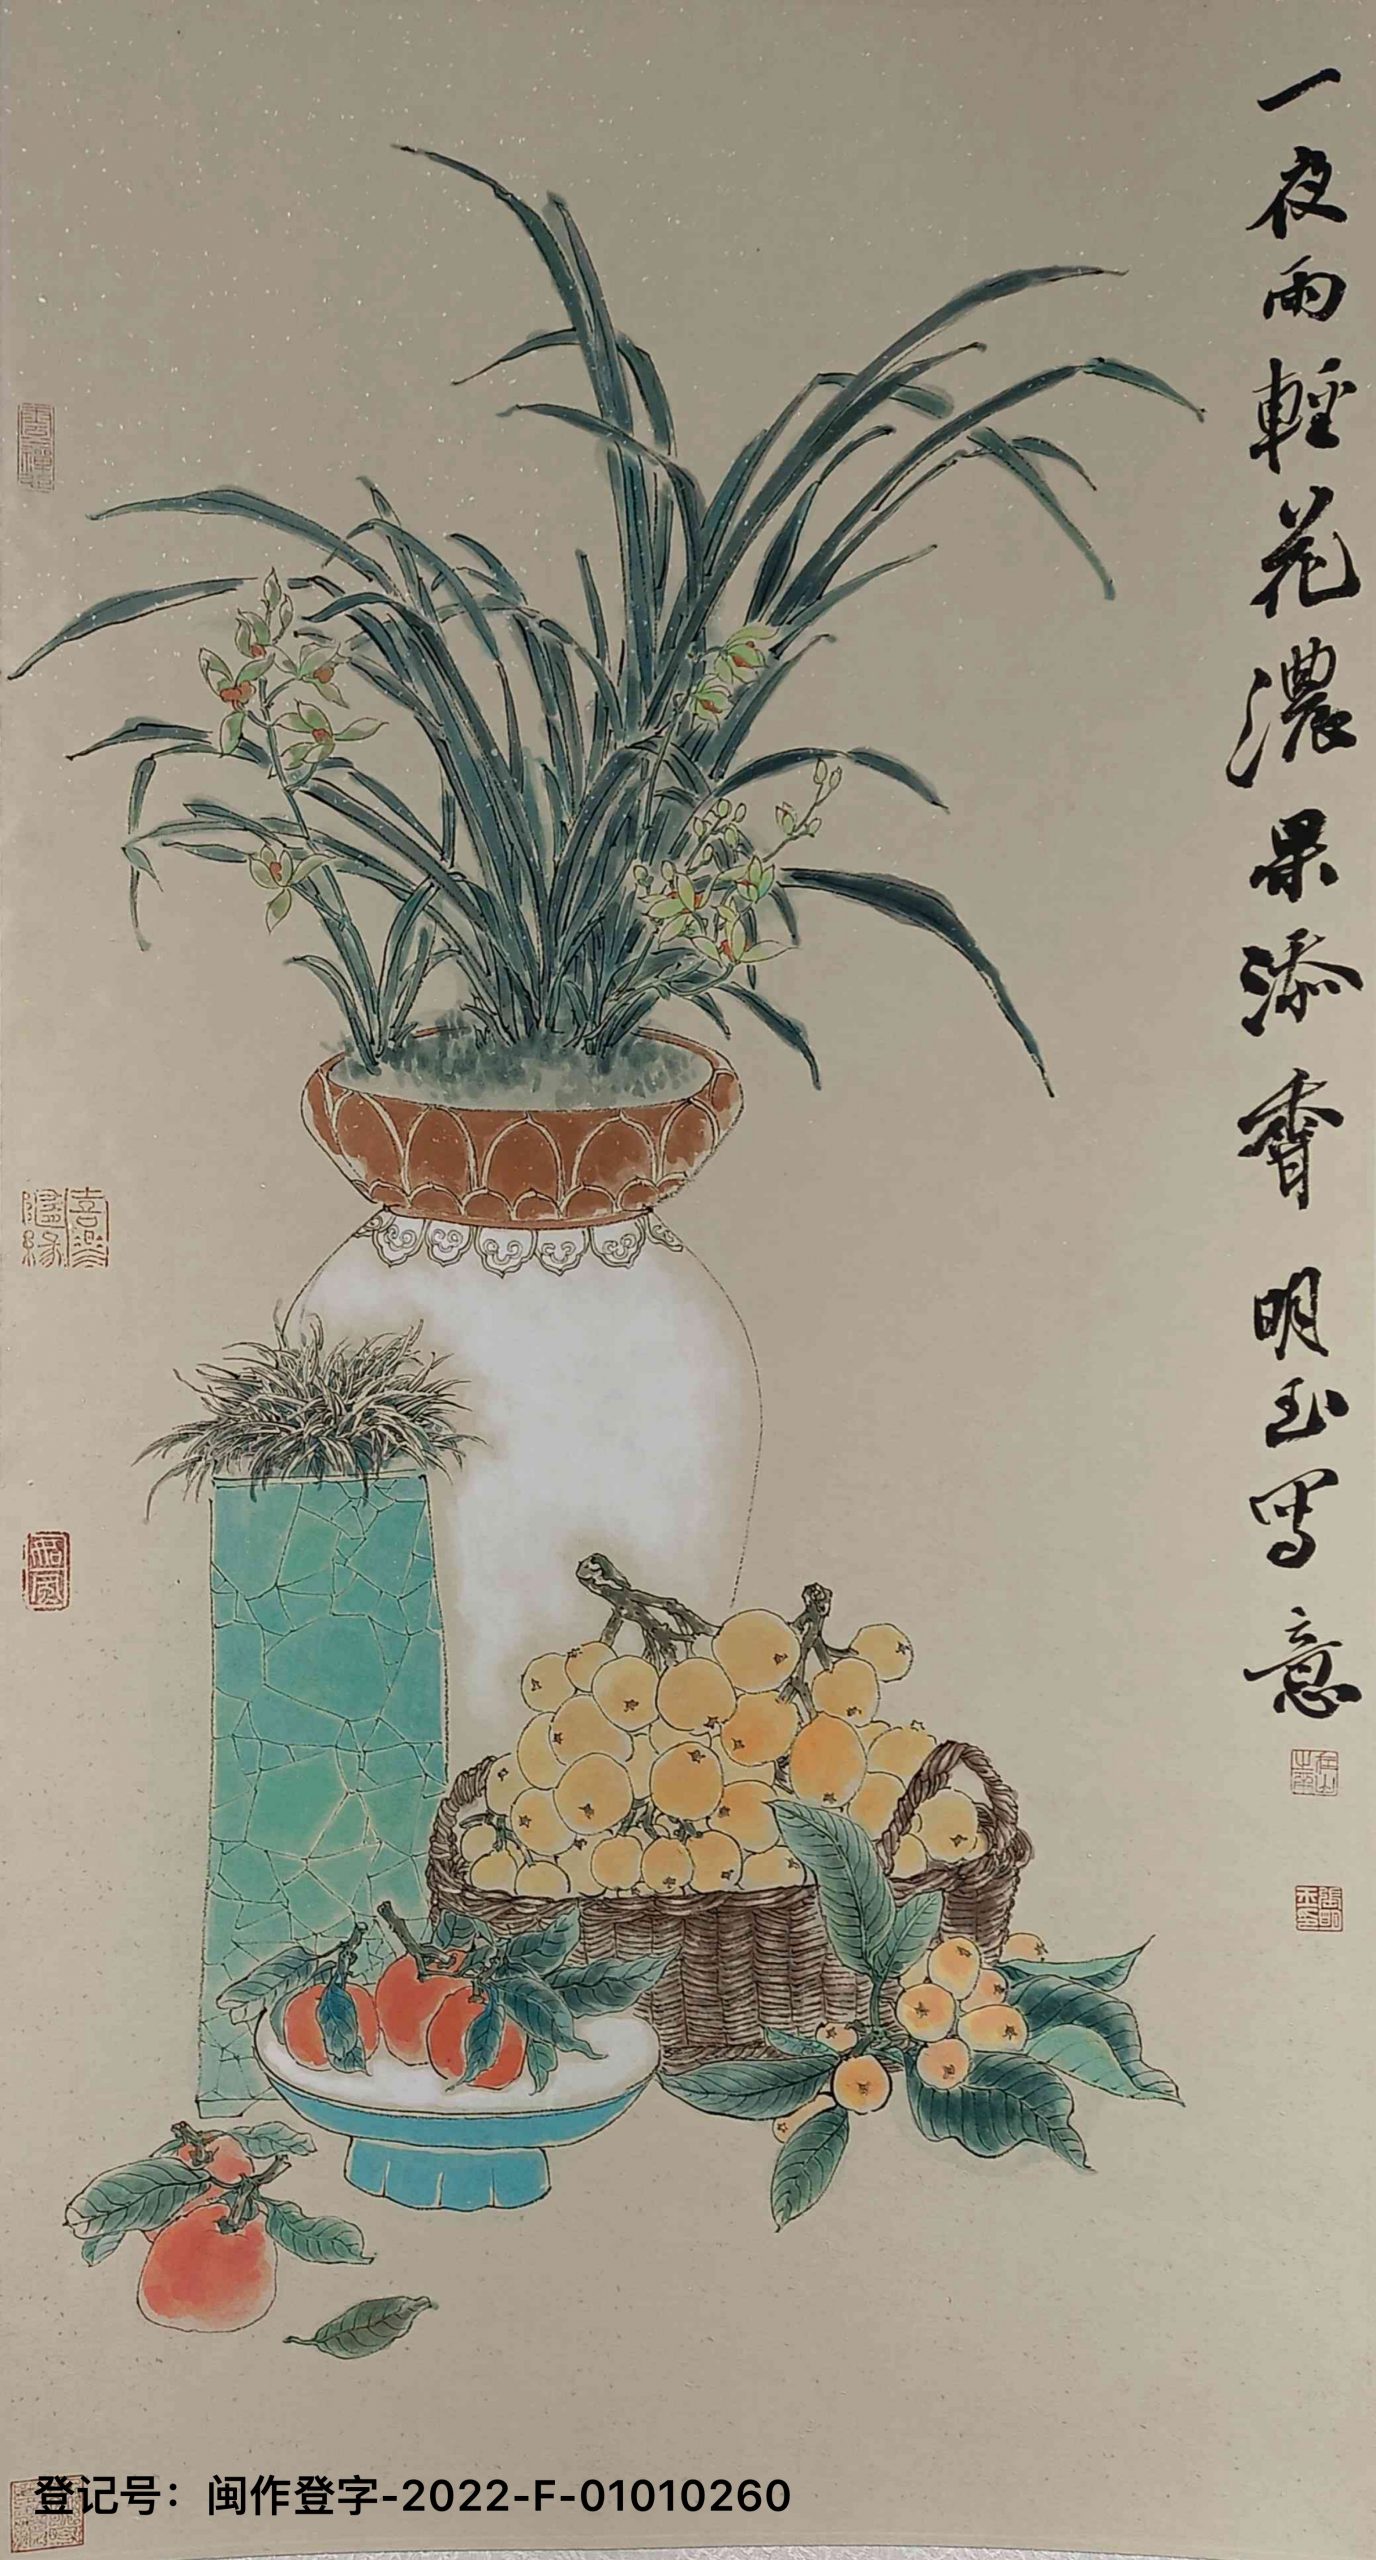 一夜雨輕花濃果添香 明玉写意
喜舍
随缘
登记号：闽作登字-2022-F-01010260